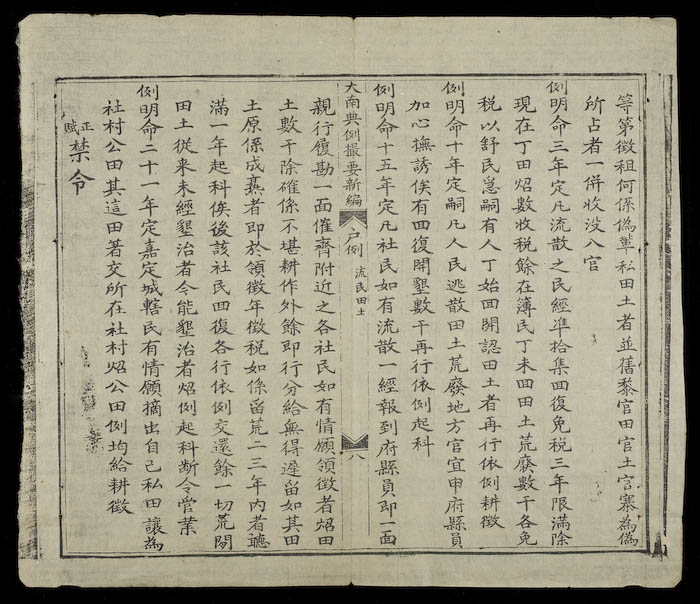 等第徵租何係偽辈私田土者並舊黎官田官土官寨為偽
所占者一併收没入官
例明命三年定凡流散之民經準拾集回復免稅三年限滿除
現在丁田炤數收稅餘在簿民丁未回田土荒廢數干各免
稅以舒民急嗣有人丁始回開認田土者再行依例耕徵
例明命十年定嗣凡人民逃散田土荒廢地方官宜申府縣員
加心撫誘俟有回復開墾數干再行依例起科
例明命十五年定凡社民如有流散一經報到府縣員即一面
大南典例撮要新編 户例 流民田土 八
親行履勘一面催齊附近之各社民如有情願領徵者炤田
土數干除確係不堪耕作外餘即行分給無得遲留如其田
土原係成熹者即於領徵年徵稅如係留荒二三年内者聽
滿一年起科俟後該社民回復各行依例交還餘一切荒閒
田土從来未經墾治者令能墾治者炤例起科断令管業
例明命二十一年定嘉定城轄民有情願摘出自己私田讓為
社村公田其這田著交所在社村炤公田例均給耕徵
正賦 禁令